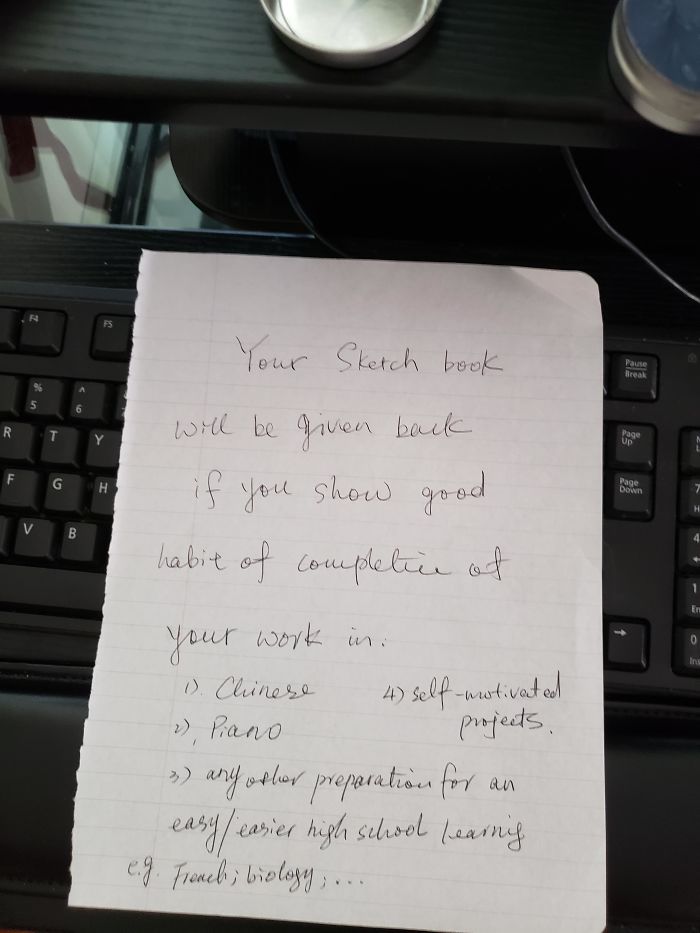 Your Sketch book
will be given back
if you show good
habit of completion of
your work in:
1). Chinese
2), Piano
3) any other preparation for an
easy/easier high school learning
e.g. French; biology; ...
4) self-motivated
projects.
F4
F5
%
5
^
6
R
T
Y
F
G
H
V
B
Pause
Break
Page
Up
Page
Down
7
4
1
0